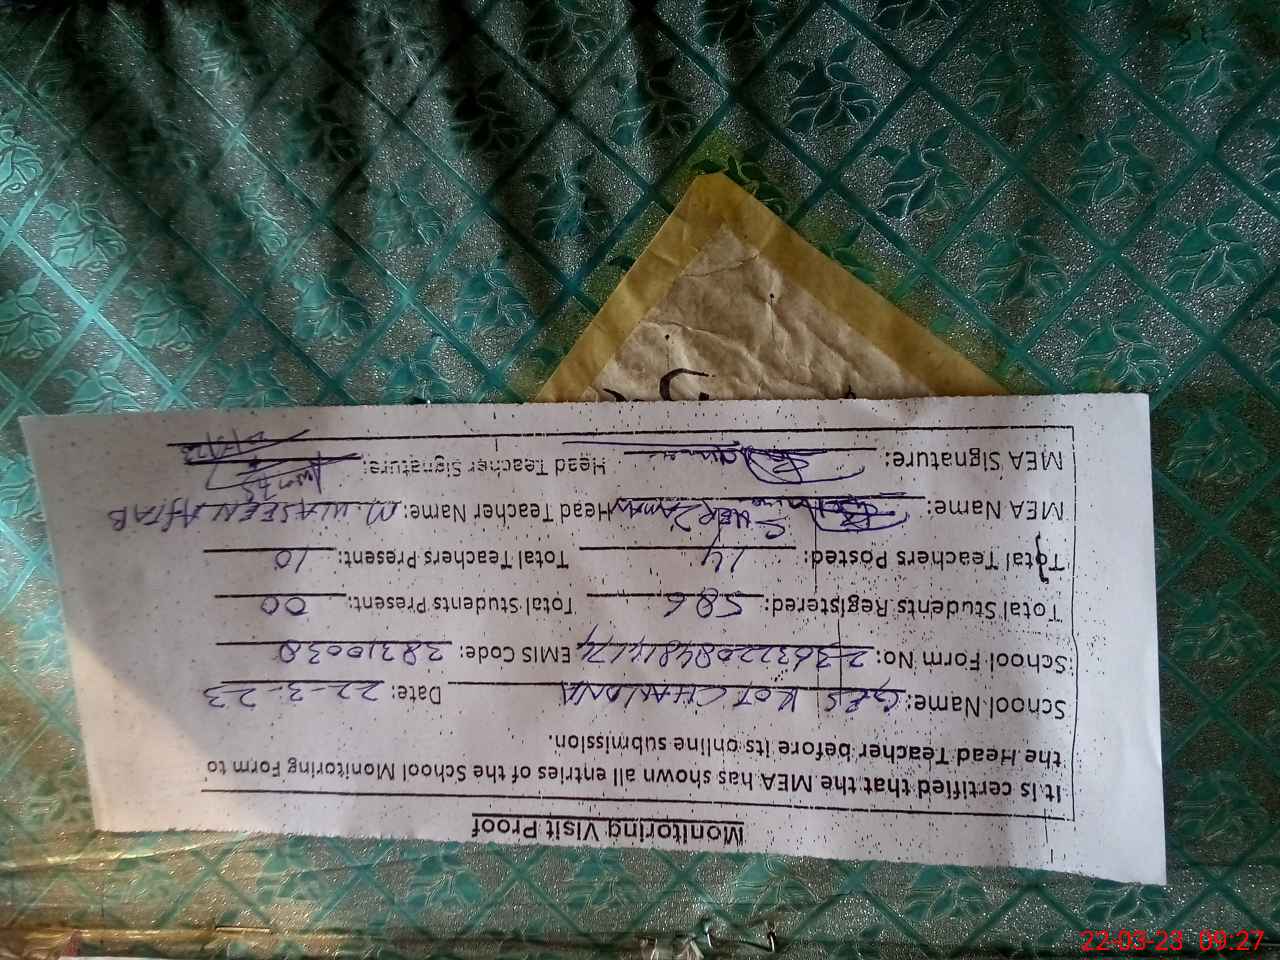 Monitoring Visit Proof
It is certified that the MEA has shown all entries of the School Monitoring Form to
the Head Teacher before its online submission.
School Name: GES KOT CHANDNA Date: 22-3-23
School Form No: EMIS Code: 38310030
Total Students Registered: 586 Total Students Present: 00
Total Teachers Posted: 14 Total Teachers Present: 10
MEA Name: SHER ZAMAN Head Teacher Name: M. WASEEN AFTAB
MEA Signature: Head Teacher Signature:
22-03-23 09:27